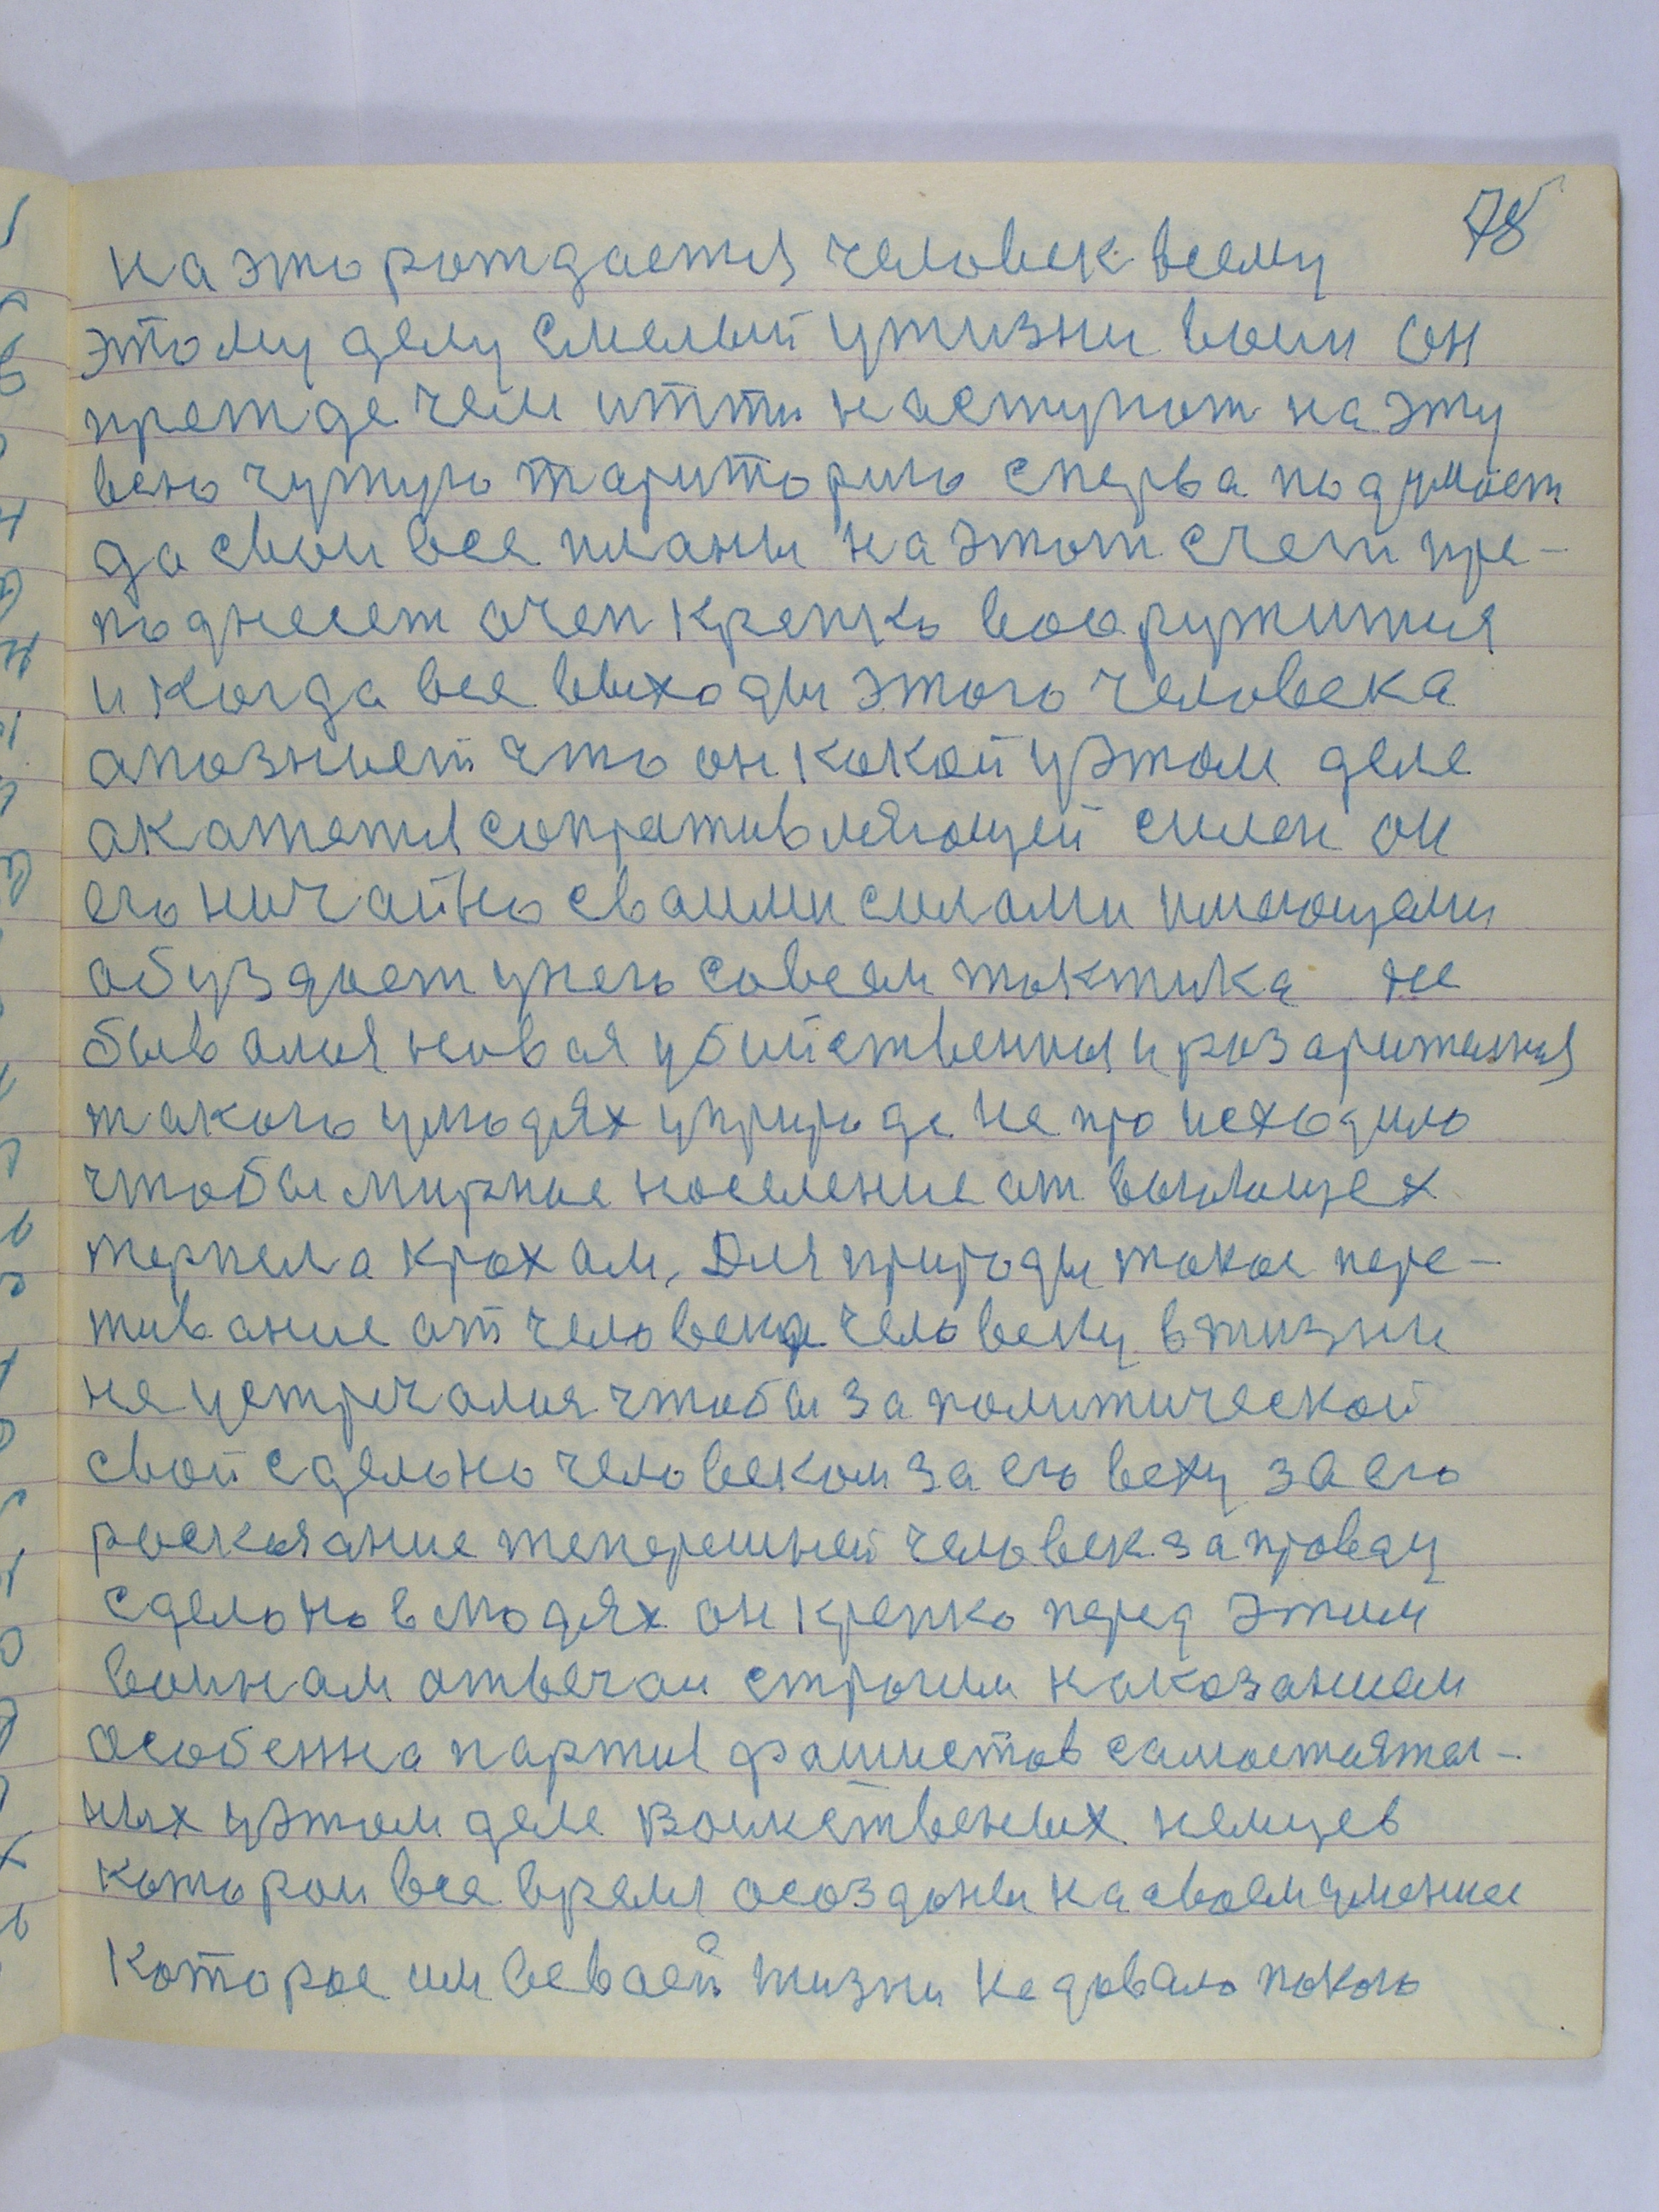 78
на это рождается человек всему
этому делу смелый ужизни воин он
прежде чем итти наступат на эту
всю чужую тариторию сперва подумоет
да свои все планы на этот счет пре-
поднесет очен крепко вооружится
и когда все выходы этого человека
апознает что он какой уэтом деле
акажется сопративляющей силен он
его ничайно сваими силами имеющеми
обуздает унего совсем тактика не
бывалая новая убийственная и розарителная
такого улюдях уприроде не происходило
чтобы мирное население от воюющех
терпела крахам, Для природы такое пере-
живание от человека человеку вжизни
не устречалися чтобы за политической
свой сделоно человеком за его веху за его
росказание теперешней человек за провду
сделоно в людях он крепко перед этим
воинам отвечал строгим наказанием
особенна партия фашистов самостоятел-
ных уэтом деле воинственых немцев
которои все время осозданы на своем умении
Которое им всваей жизни не довало покою